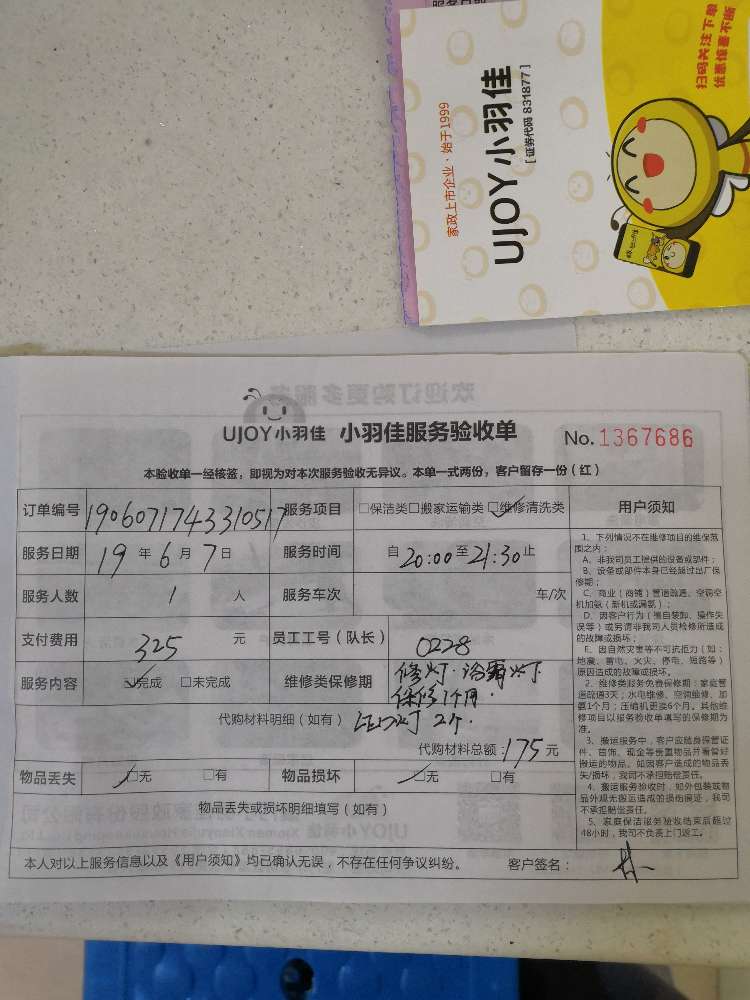 扫码关注下单
优惠惊喜不断
家政上市企业·始于1999
UJOY小羽佳
[证券代码 831877]
欢迎订购更多服务
UJOY小羽佳 小羽佳服务验收单 No. 1367686
本验收单一经核签，即视为对本次服务验收无异议。本单一式两份，客户留存一份（红）
订单编号 1906071743310517 服务项目 □保洁类□搬家运输类☑维修清洗类 用户须知
服务日期 19 年 6 月 7 日 服务时间 自 20:00 至 21:30 止
服务人数 1 人 服务车次 车/次
支付费用 325 元 员工工号（队长） 0228
服务内容 ☑完成 □未完成 维修类保修期 修灯·浴霸灯
保修1个月.
代购材料明细（如有） 灯 2个.
代购材料总额：175 元
物品丢失 ☑无 □有 物品损坏 ☑无 □有
物品丢失或损坏明细填写（如有）
本人对以上服务信息以及《用户须知》均已确认无误，不存在任何争议纠纷。 客户签名：
1、下列情况不在维修项目的维保范
围之内：
A、非我司员工提供的设备或部件；
B、设备或部件本身已经超过出厂保
修期；
C、商业（商铺）管道疏通、空调空
机加氨（新机或漏氨）；
D、因客户行为（擅自装卸、操作失
误等）或另请非我司人员检修所造成
的故障或损坏；
E、因自然灾害等不可抗拒力（如：
地震、雷电、火灾、停电、短路等）
原因造成的故障或损坏。
2、维修类服务免费保修期：家庭管
道疏通3天；水电维修、空调维修、加
氨1个月；压缩机更换6个月。其他维
修项目以服务验收单填写的保修期为
准。
3、搬运服务中，客户应随身保管证
件、首饰、现金等贵重物品并看管好
搬运的物品。如因客户造成的物品丢
失/损坏，我司不承担赔偿责任。
4、搬运服务验收时，如外包装或物
品外观无搬运造成的损伤痕迹，我司
不承担赔偿责任。
5、家庭保洁服务验收结束后超过
48小时，我司不负责上门返工。